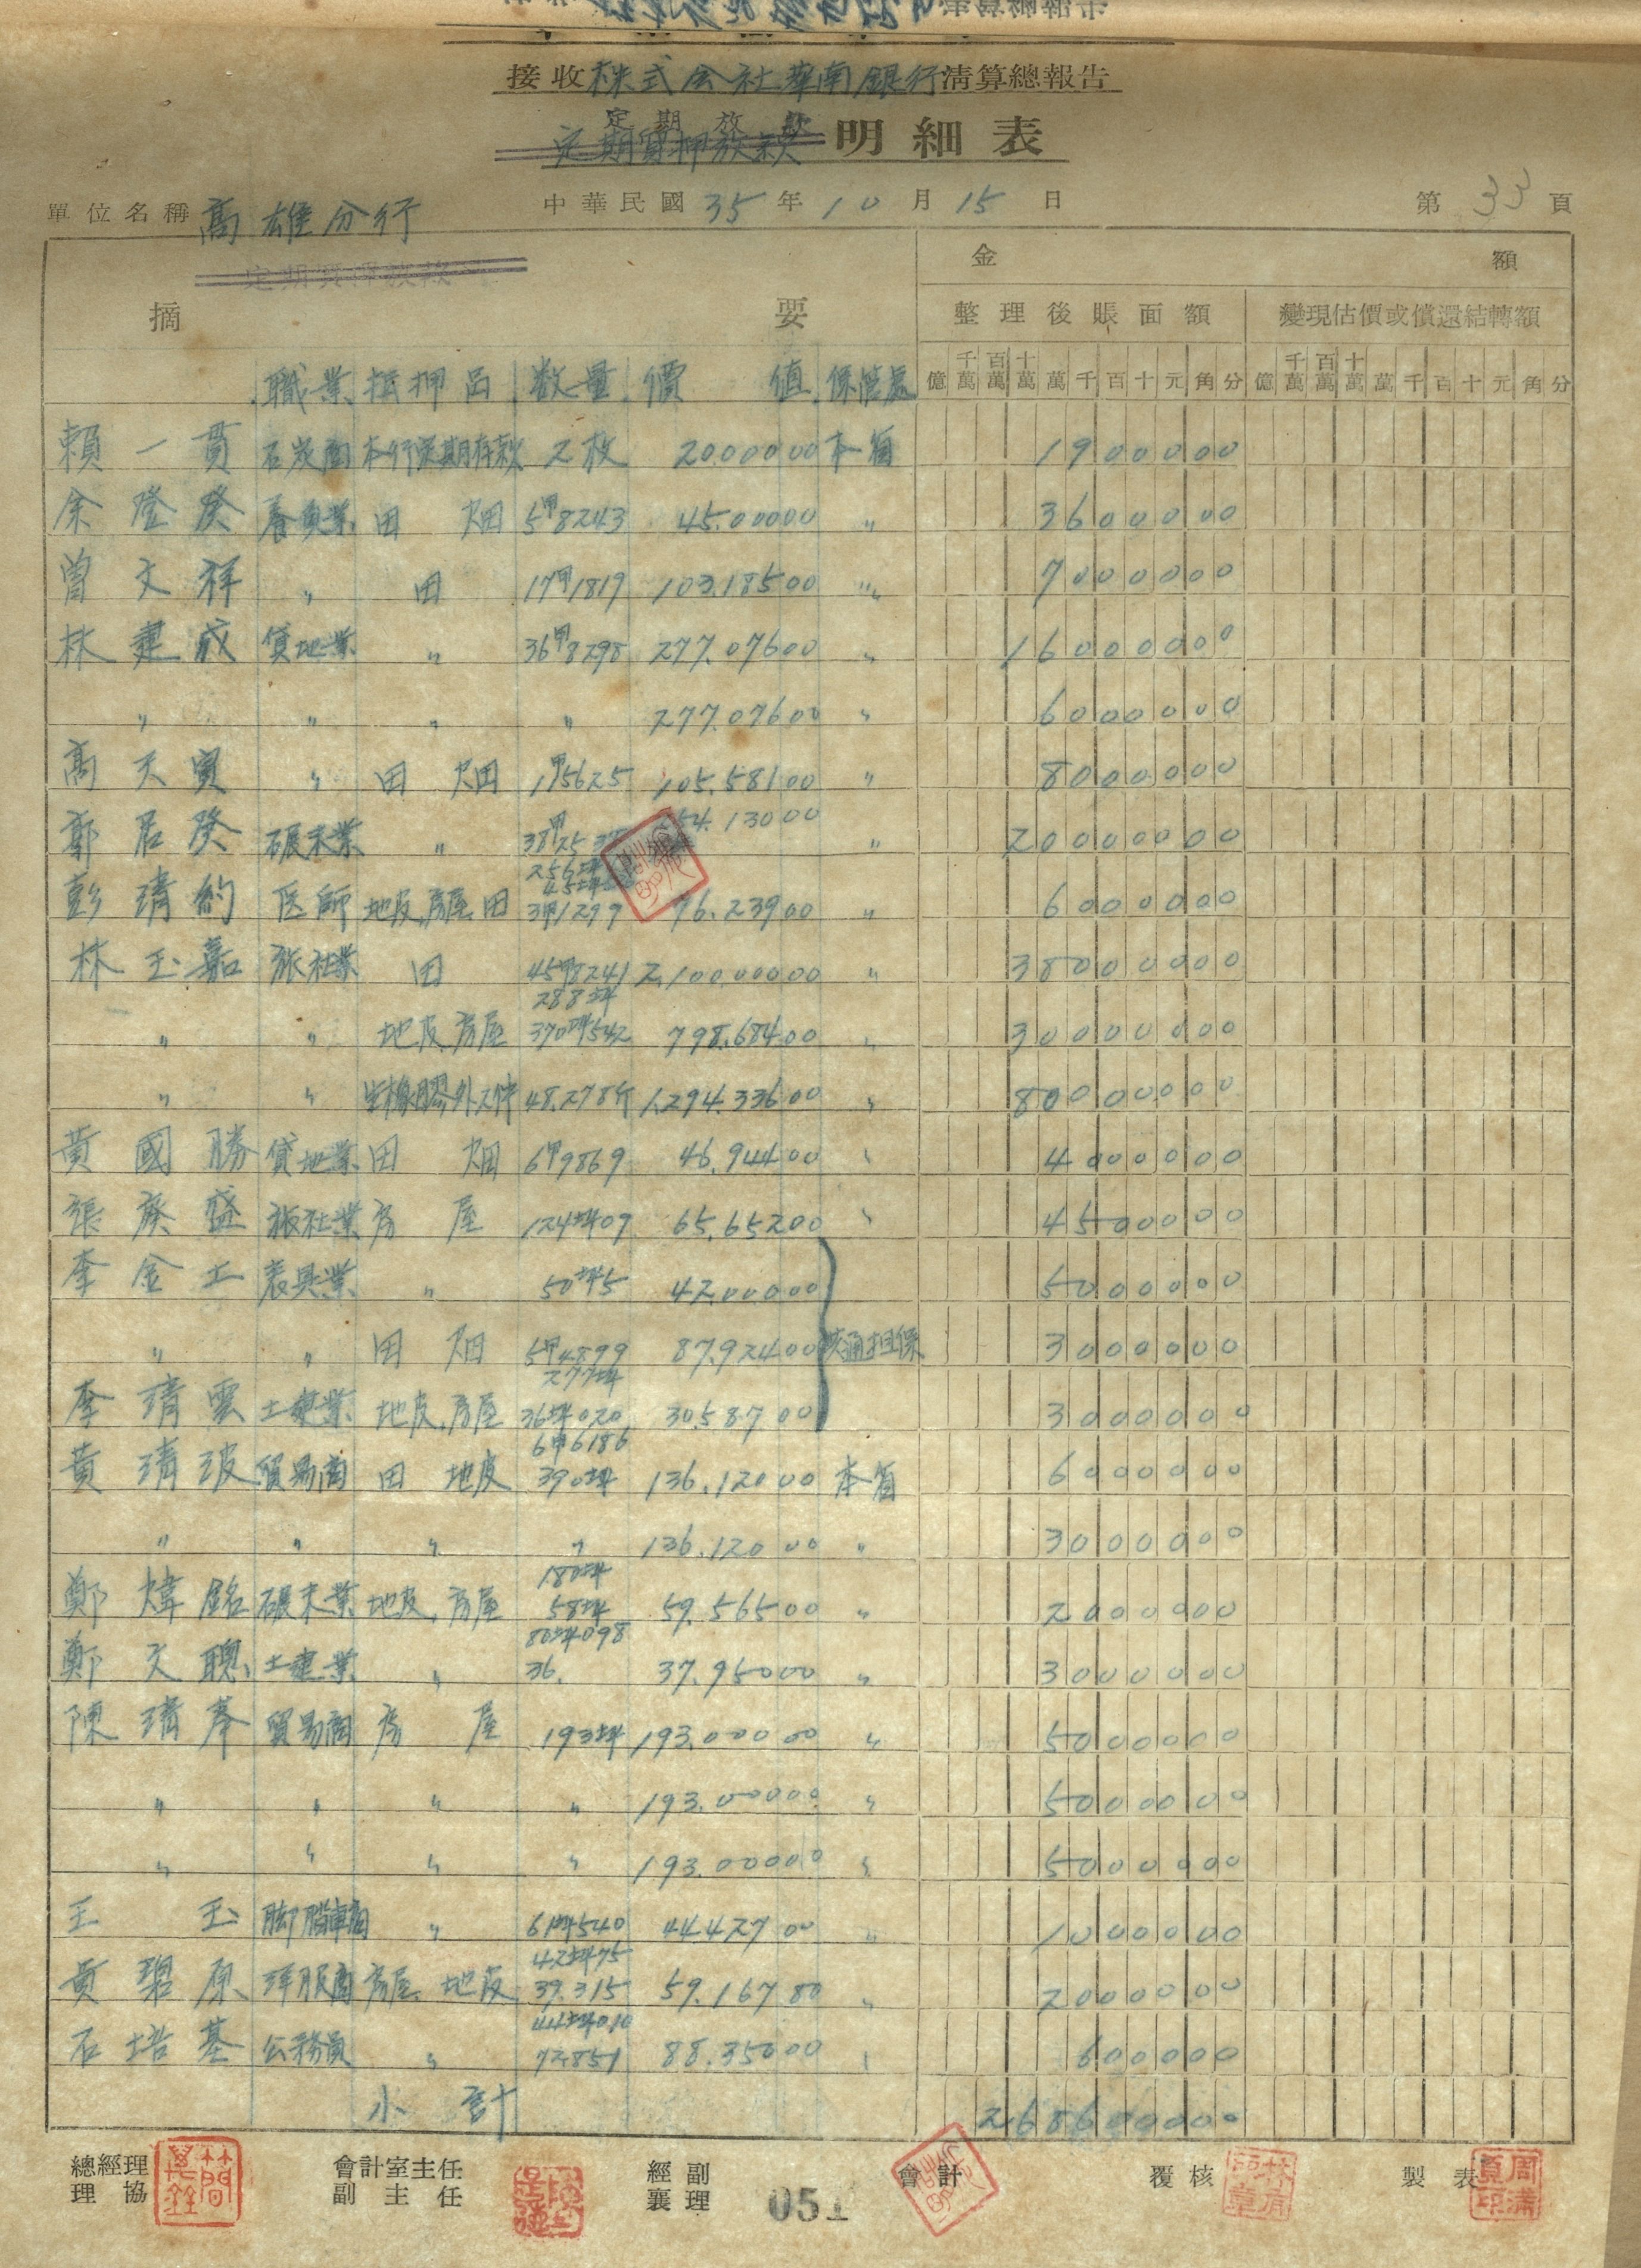 接收株式会社華南銀行清算總報告
定期放款
定期質押放款 明細表
單位名稱 高雄分行 中華民國35年10月15日 第33頁
金 額
摘 要 整理後賬面額 變現估價或償還結轉額
億 千萬 百萬 十萬 萬 千 百 十 元 角 分 億 千萬 百萬 十萬 萬 千 百 十 元 角 分
職業 抵押品 数量 價值 保管處
賴一貫 石炭商 本行定期存款 2枚 20.000 00 本省 1900000
余登癸 養魚業 田 畑 5甲8243 45.000 00 〃 3600000
曾文祥 〃 田 17甲1819 103.185 00 〃 7000000
林建成 貸地業 〃 36甲8298 277.076 00 〃 16000000
〃 〃 〃 〃 277.076 00 〃 6000000
高天 〃 田 畑 1甲5625 105.581 00 〃 8000000
鄭居 碾米業 〃 54.130 00 〃 20000000
256坪
彭清約 医師 地皮.房屋.田 3甲1299 96.239 00 〃 6000000
林玉嘉 田 45甲8241 2,100.000 00 〃 38000000
288坪
〃 〃 地皮.房屋 370坪542 798.684 00 〃 30000000
〃 〃 生橡膠外 48.278斤 1.294.336 00 〃 80000000
黃國勝 貸地業 田 畑 6甲9869 46.944 00 〃 4000000
張葵盛 房 屋 124坪09 65.652 00 〃 4500000
李金土 表具業 〃 50坪5 42.000 00 5000000
〃 〃 田 畑 5甲4899 87.924 00 共通担保 3000000
277坪
李清雲 土建業 地皮.房屋 36坪020 30.587 00 3000000
6甲6186
黃清波 貿易商 田 地皮 390坪 136.120 00 本省 6000000
〃 〃 〃 〃 136.120 00 〃 3000000
180坪
鄭煒銘 碾米業 地皮.房屋 58坪 59.565 00 〃 2000000
80坪098
鄭天聰 土建業 〃 36. 37.950 00 〃 3000000
陳清 貿易商 房 屋 193坪 193.000 00 〃 5000000
〃 〃 〃 〃 193.000 00 〃 5000000
〃 〃 〃 〃 193.000 00 〃 5000000
王 玉 脚踏車商 〃 61坪540 44.427 00 〃 1000000
42坪75
黃碧原 洋服商 房屋.地皮 39.315 59.167 80 〃 2000000
44坪010
石培基 公務員 〃 72.851 88.350 00 〃 600000
小計 268600000
總經理 會計室主任 經副 會計 覆核 製表
協理 副主任 襄理
051